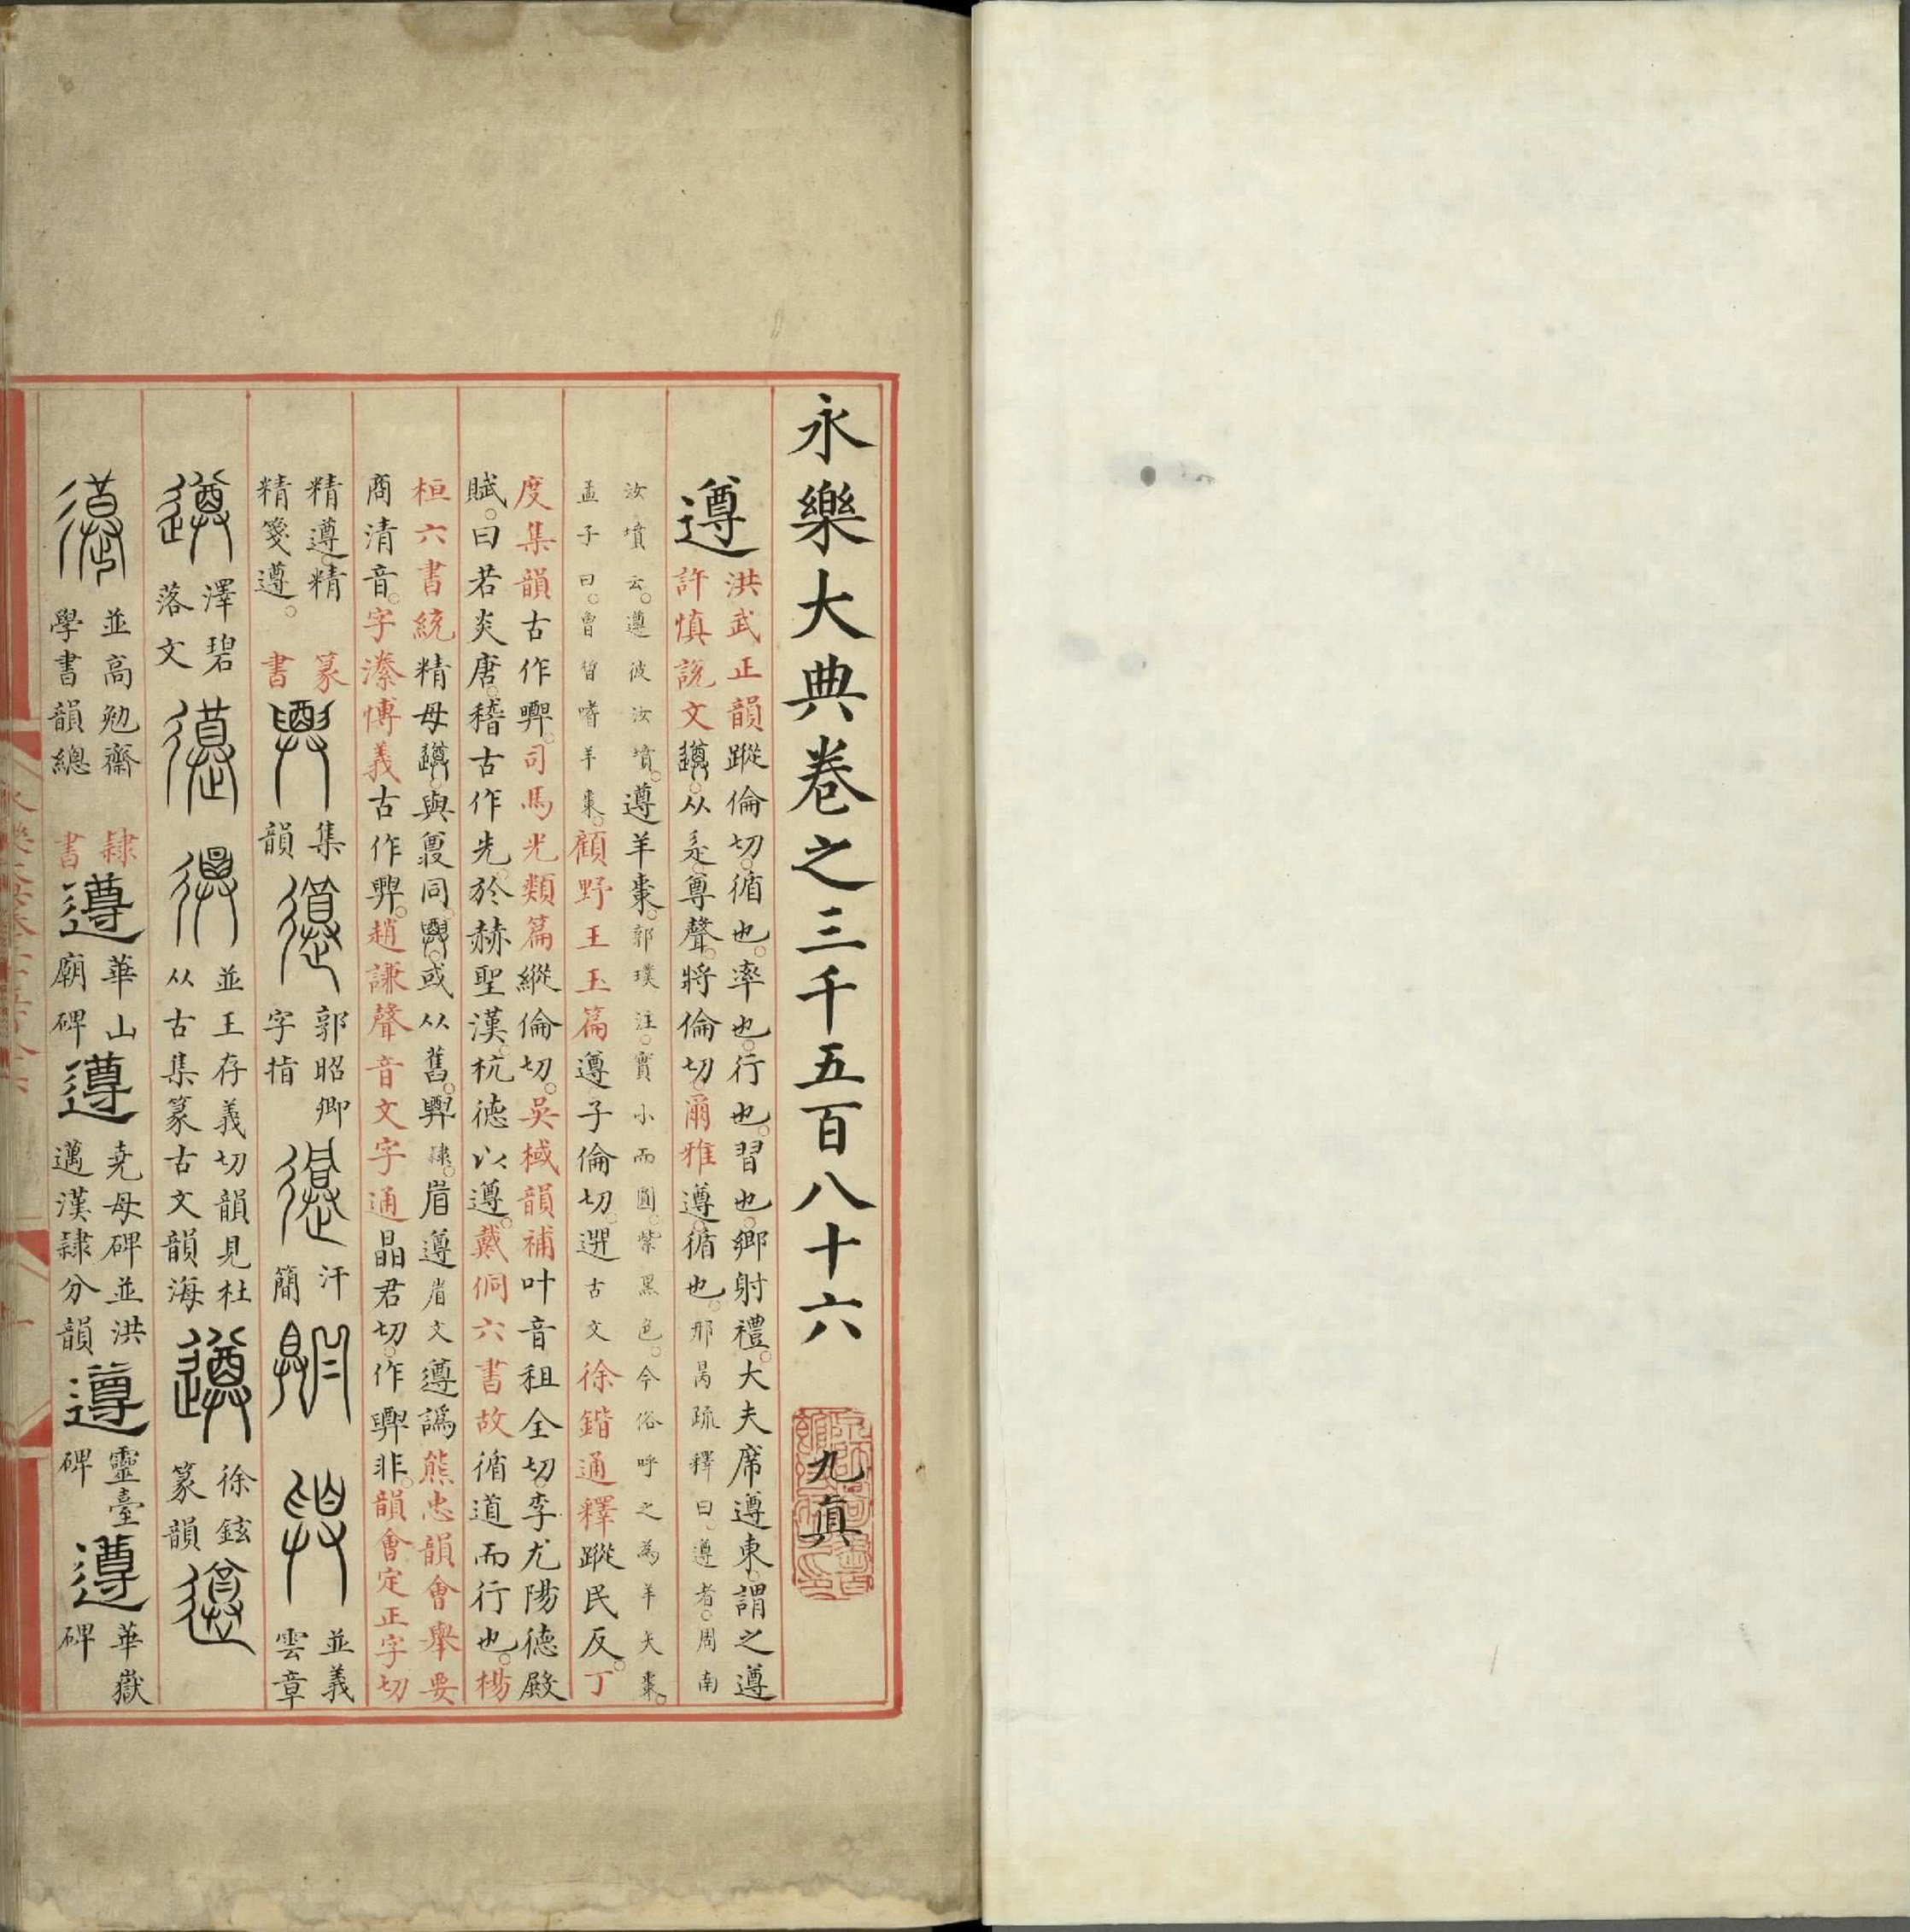 永樂大典卷之三千五百八十六
九真
遵
洪武正韻蹤倫切。循也。率也。行也。習也。鄉射禮。大夫席遵東。謂之遵
許慎說文𨗇。从辵。尊聲。將倫切。爾雅遵。循也。邢昺疏釋曰。遵者。周南
汝墳云。遵彼汝墳。遵羊棗。郭璞注。實小而圓。紫黑色。今俗呼之為羊矢棗。
孟子曰。曾晳嗜羊棗。顧野王玉篇遵子倫切。選古文徐鍇通釋蹤民反。丁
度集韻古作。司馬光類篇縱倫切。吳棫韻補叶音租全切。李尤陽德殿
賦。曰若炎唐。稽古作先。於赫聖漢。杭德以遵。戴侗六書故循道而行也。楊
桓六書統精母與同。或从舊。隸。遵文遵譌熊忠韻會舉要
商清音。字潫博義古作。趙謙聲音文字通晶君切。作非。韻會定正字切
精遵。精
精箋遵。
篆
書
集
韻
郭昭卿
字指
汗
簡
並義
雲章
澤碧
落文
並王存義切韻見杜
从古集篆古文韻海
徐鉉
篆韻
並高勉齋
學書韻總
隸
書
遵
華山
廟碑
遵
堯母碑並洪
邁漢隸分韻
遵
靈臺
碑
遵
華嶽
碑